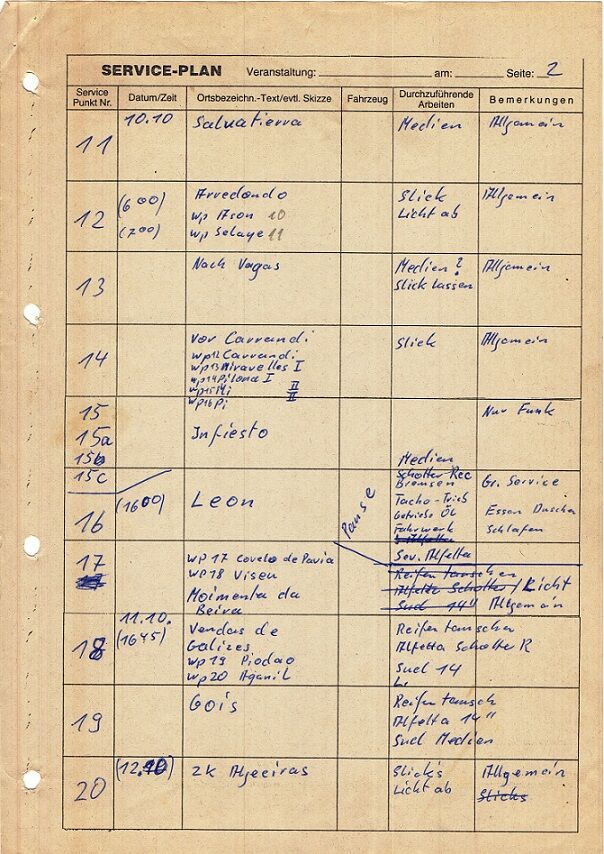 SERVICE-PLAN Veranstaltung: am: Seite: 2
Service Punkt Nr. Datum/Zeit Ortsbezeichn.-Text/evtl. Skizze Fahrzeug Durchzuführende Arbeiten Bemerkungen
11 10.10 Salvatierra Medien Allgemein
12 (6 00) Arredondo Slick Allgemein
(7 00) wp Ason 10 Licht ab
wp Selaye 11
13 Nach Vagas Medien? Allgemein
Slick lassen
14 Vor Carrandi Slick Allgemein
wp12 Carrandi
wp13 Miravelles I
wp14 Pilona I
wp15 Mi II
wp16 Pi II
15 Nur Funk
15a Infiesto
15b Medien
15c Schotter Rec
Bremsen Gr. Service
16 (16 00) Leon Pause Tacho-Trieb Essen Duschen
Getriebe Öl
Fahrwerk Schlafen
Sov. Alfetta
17 WP 17 Covelo de Pavia Reifen tauschen
WP 18 Viseu Alfetta Schotter / Licht
Moimenta da Sud 14" Allgemein
Beira
18 11.10. Vendas de Reifen tauschen
(16 45) Galizes Alfetta Schotter R
wp 19 Piodao Sud 14
wp 20 Aganil
19 Gois Reifen tausch
Alfetta 14"
Sud Medien
20 ZK Algeciras Slick's Allgemein
Licht ab Slicks